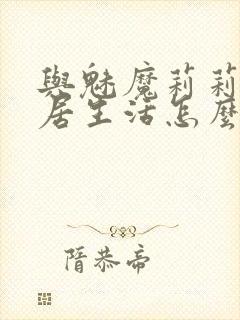 與魅魔莉莉
居生活怎麼
隋恭帝